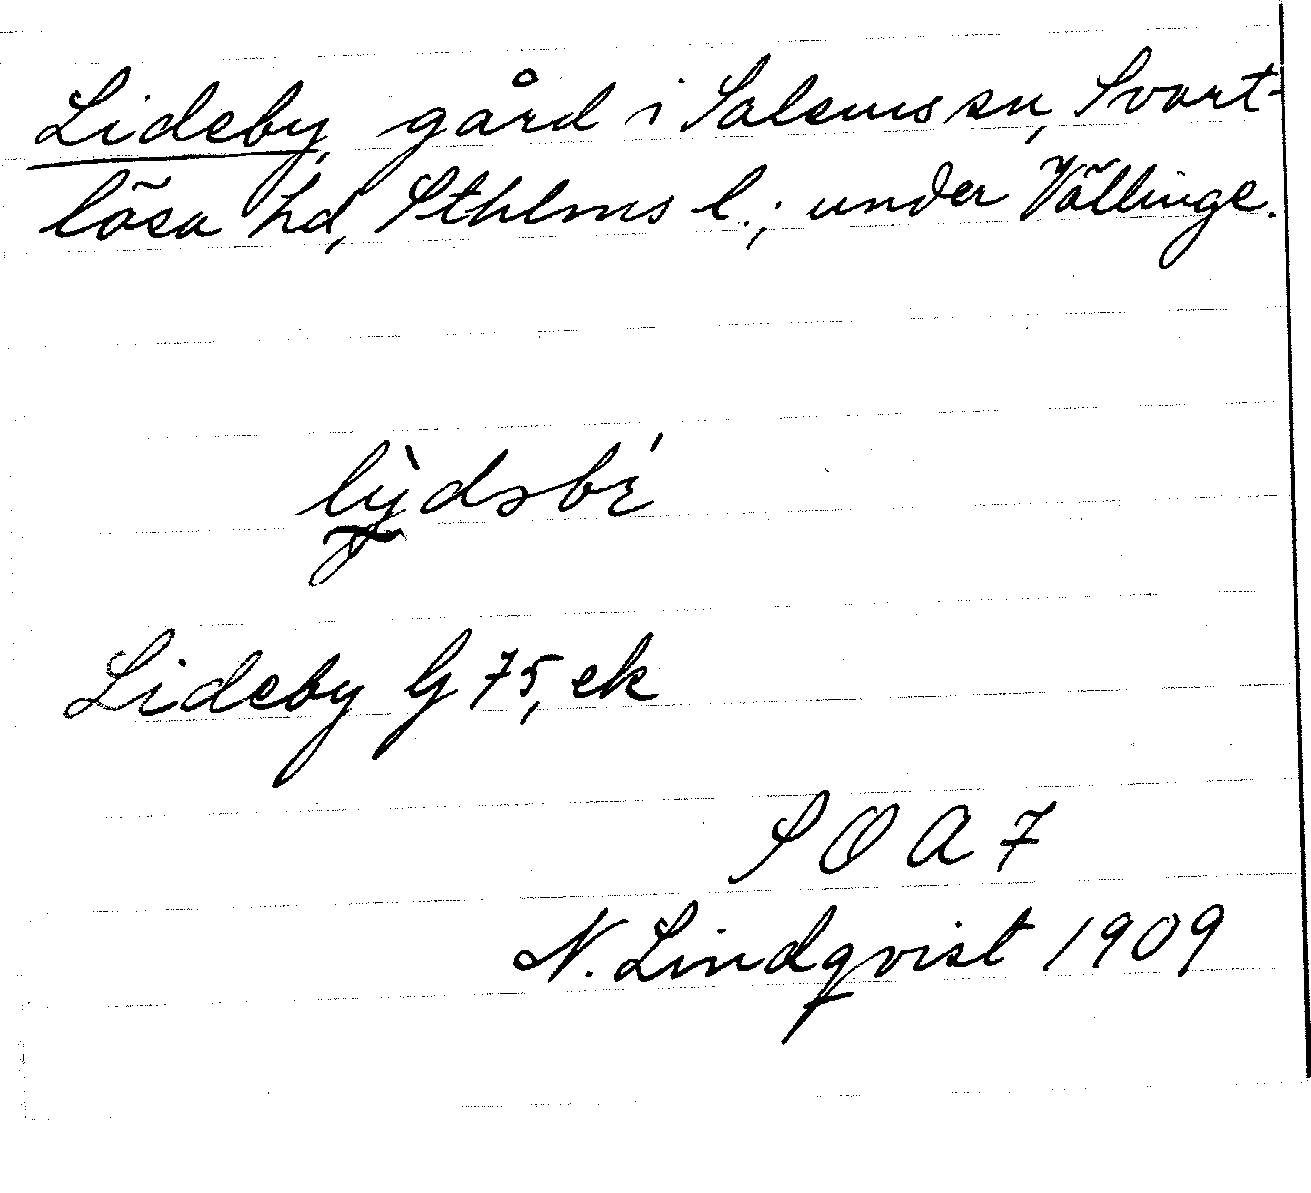 Lideby gård i Salems sn, Svart-
lösa hd, Sthlms l.; under Vällinge.
Lideby G 75, ek
SOA 7
N. Lindqvist 1909